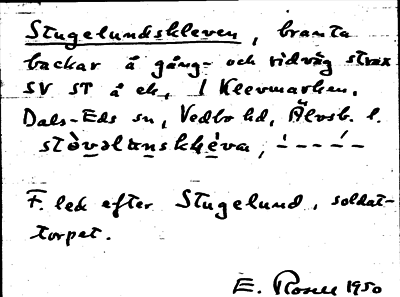 Stugelundskleven, branta
backar å gång- och ridväg strax
SV ST å ek, i Klevmarken,
Dals-Eds sn, Vedbo hd, Älvsb. l.
F. led efter Stugelund, soldat-
torpet.
E. Rosell 1950